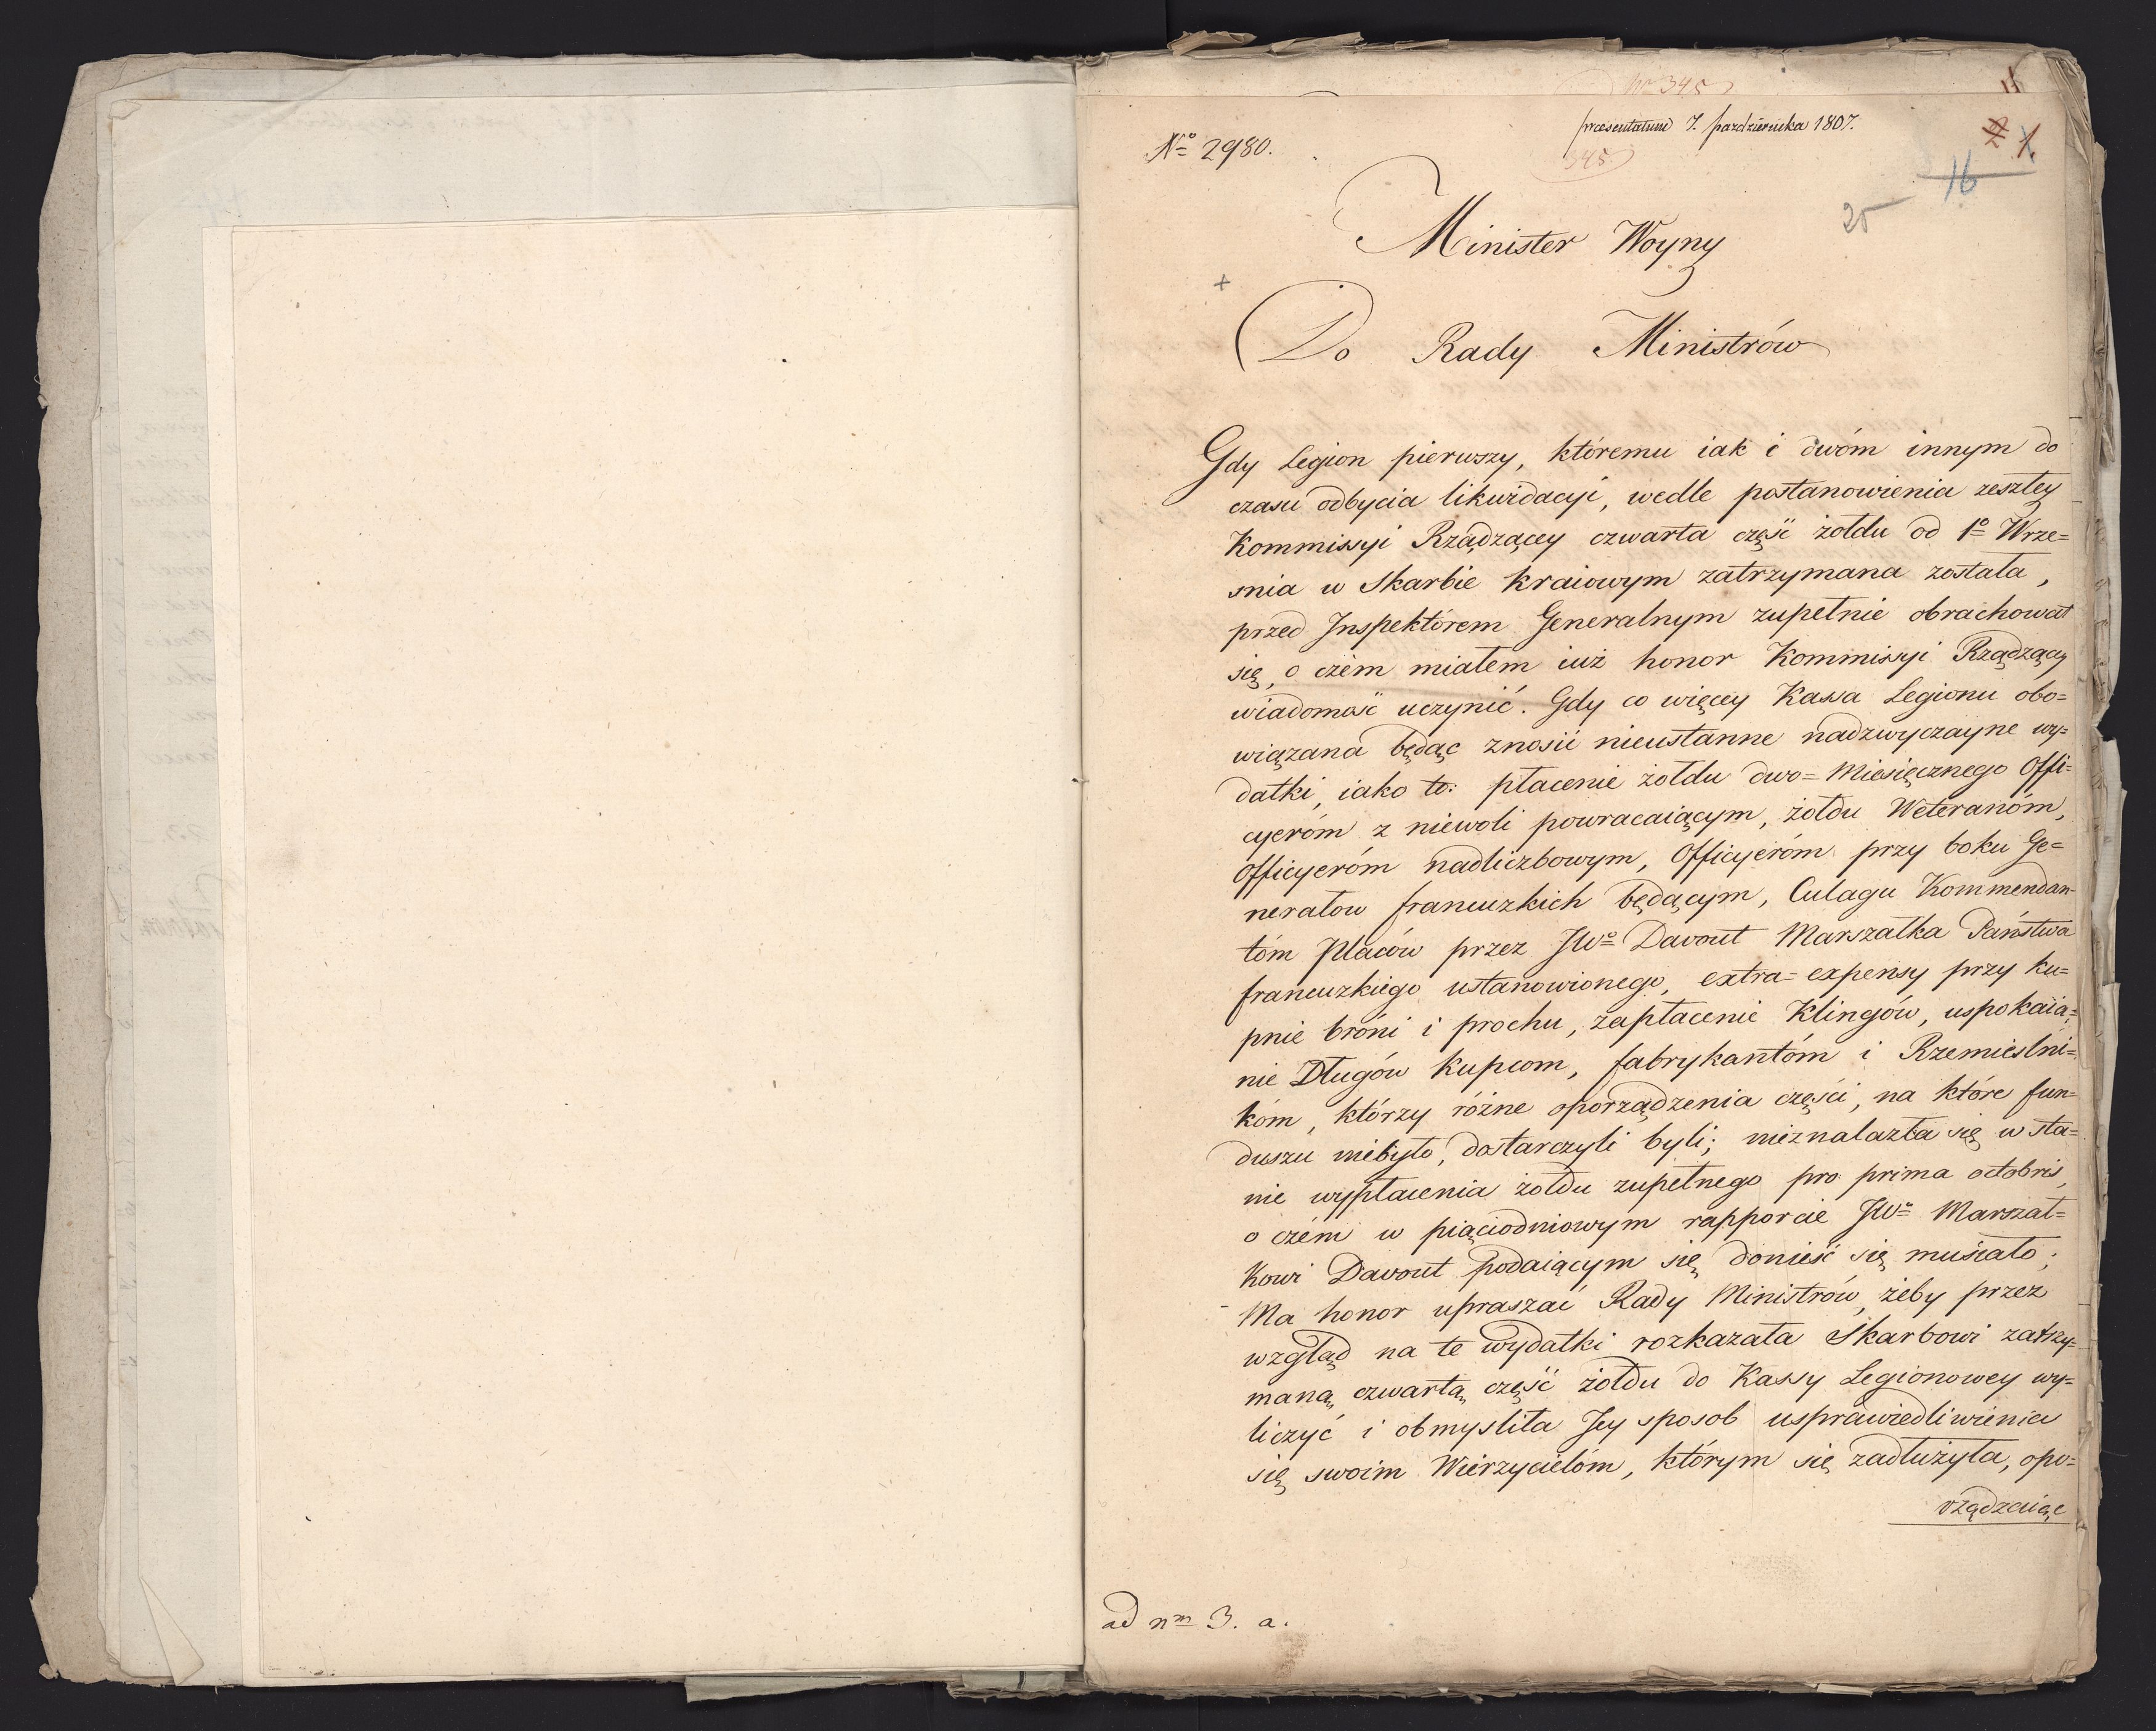 No 345
11
præsentatum 7. pazdziernika 1807.
No 2980.
345
1.
16
25
Minister Woyny
+
Do Rady Ministrów
Gdy Legion pierwszy, któremu iak i dwóm innym do
czasu odbycia likwidacyi, wedle postanowienia zeszłey
Kommissyi Rządzącey czwarta część żołdu od 1o Wrze=
snia w Skarbie kraiowym zatrzymana została,
przed Inspektórem Generalnym zupełnie obrachował
się, o czém miałem iuż honor Kommissyi Rządzącey
wiadomość uczynić. Gdy co więcey Kassa Legionu obo=
wiązana będąc znosić nieustanne nadzwyczayne wy=
datki, iako to: płacenie żołdu dwo=miesięcznego Offi=
cyeróm z niewoli powracaiącym, żołdu Weteranóm,
Officyeróm nadliczbowym, Officyeróm przy boku Ge=
nerałow francuzkich będącym, Culagu Kommendan-
tóm Placów przez JWo Davout Marszałka Państwa
francuzkiego ustanowionego, extra=expensy przy ku=
pnie bróni i prochu, zapłacenie Klingów, uspokaia=
nie Długów kupcom, fabrykantóm i Rzemieslni=
kóm, którzy różne oporządzenia części, na które fun=
duszu niebyło, dostarczyli byli; nieznalazła się w sta=
nie wypłacenia żołdu zupełnego pro prima octobris,
o czém w piąciodniowym rapporcie JWo Marszał=
kowi Davout podaiącym się donieść się musiało;
Ma honor upraszać Rady Ministrów, żeby przez
wzgląd na te wydatki rozkazała Skarbowi zatrzy=
maną czwartą część żołdu do Kassy Legionowey wy=
liczyć i obmysliła Jey sposob usprawiedliwienia
się swoim Wierzycielóm, którym się zadłużyła, opo=
rządzaiąc
ad nm 3. a.